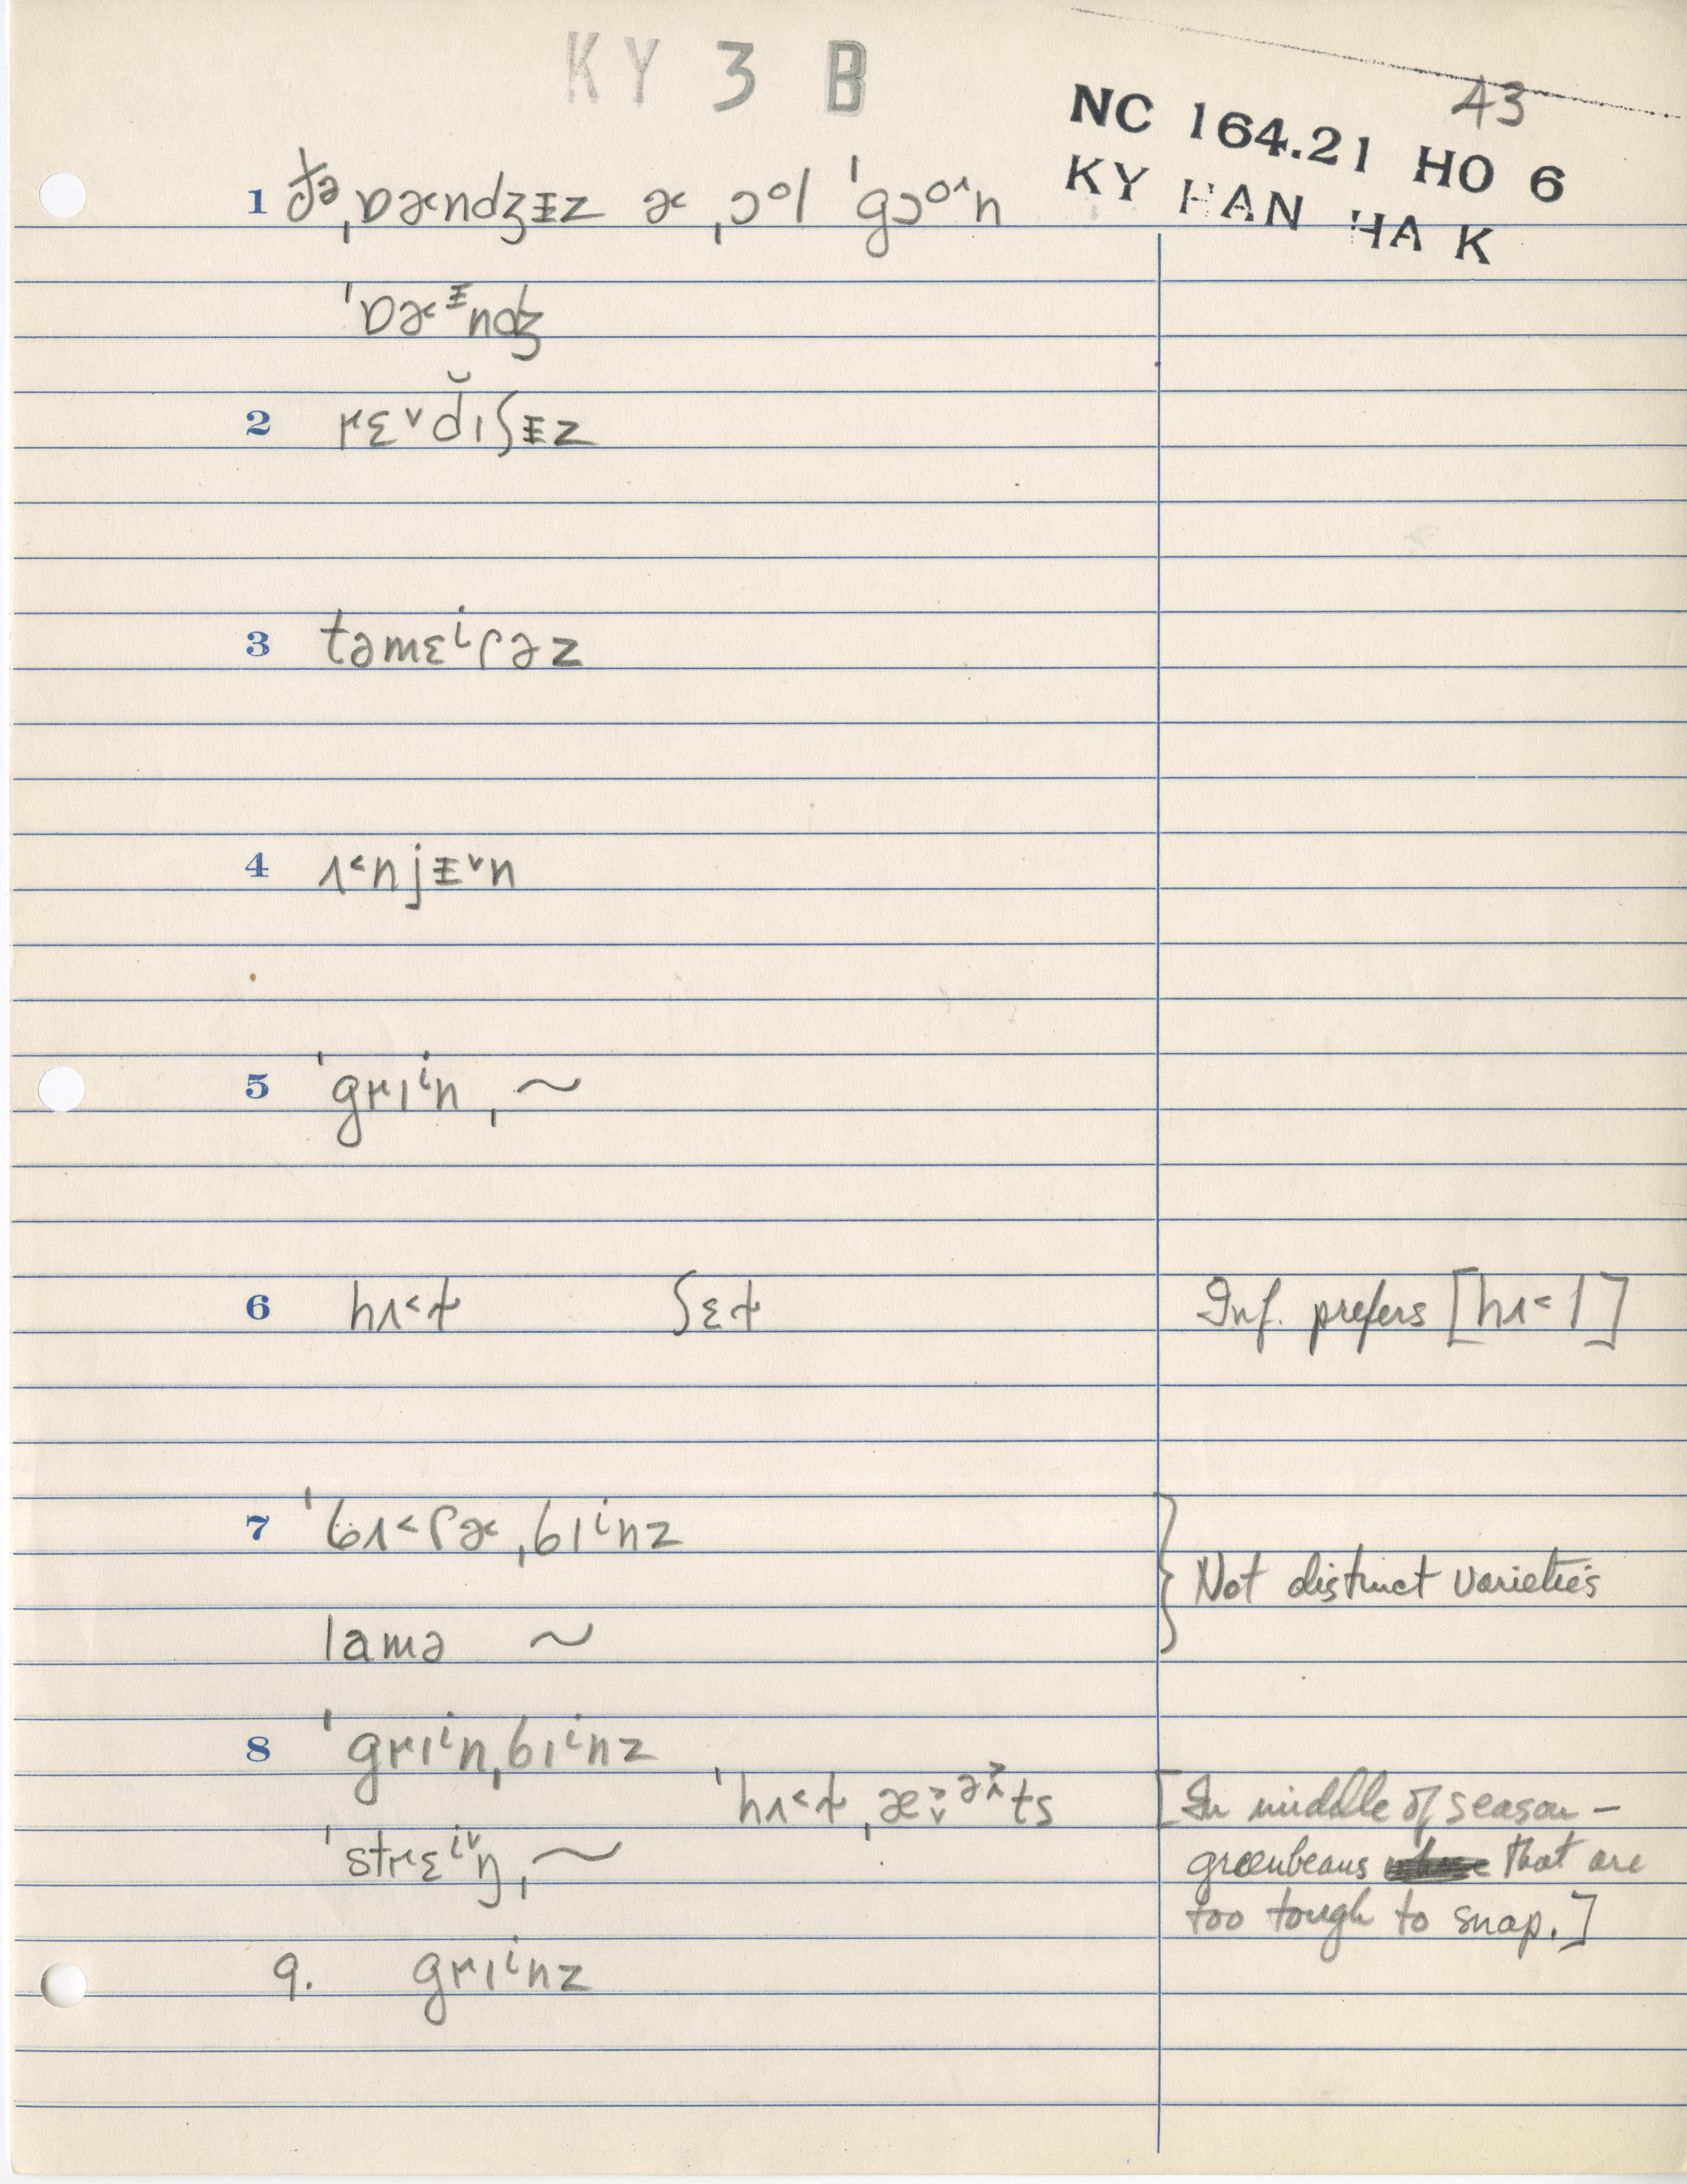 KY 3 B
43
NC 164.21 HO 6
KY HAN HA K
1 ðə ˌɒɚndʒᵻz ɚ ˌɔᵒl ˈgɔᵒ˄n
ˈɒɚᵻndʒ
2 rɛ˅d̆ɪʃᵻz
3 təmɛⁱɾəz
4 ʌ˂njᵻ˅n
5 ˈgrɪⁱn ˌ~
6 hʌ˂ɫ ʃɛɫ
Inf. prefers [hʌ˂l]
7 ˈbʌ˂ɾɚ ˌbɪⁱnz
Not distinct varieties
lamə ~
8 ˈgrɪⁱn ˌbɪⁱnz
ˈhʌ˂ɫ ˌæ˅ᵊts
[In middle of season –
ˈstrɛⁱ˅ŋ ˌ~
greenbeans that are
too tough to snap.]
9. grɪⁱnz